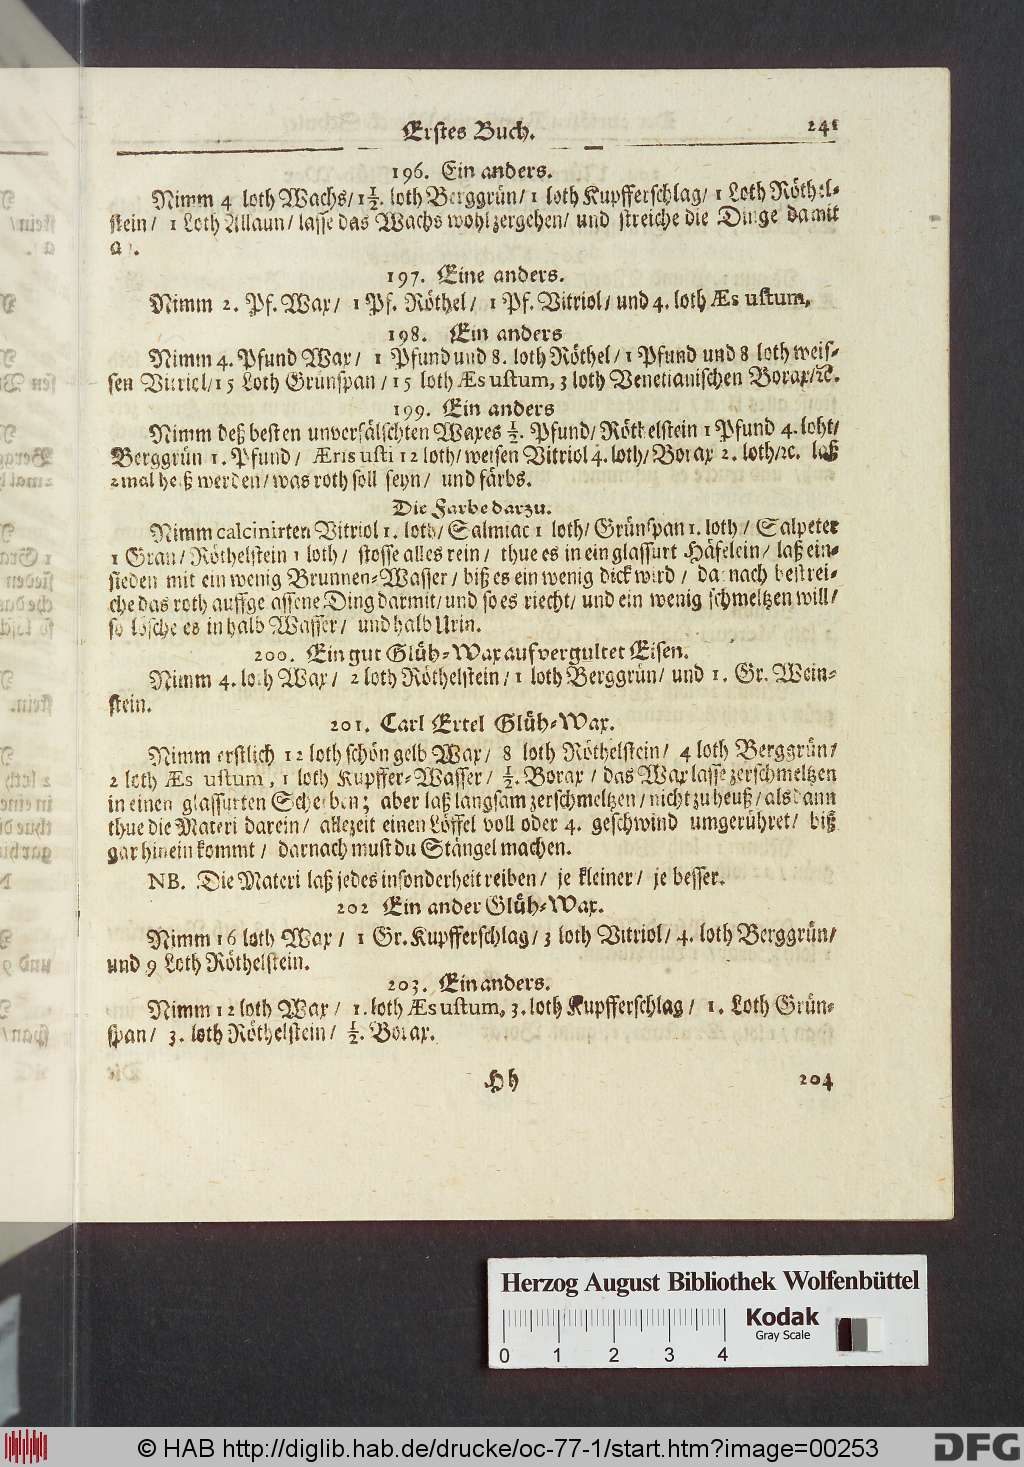 Erstes Buch. 241
196. Ein anders.
Nimm 4 loth Wachs/ 1½. loth Berggrün/ 1 loth Kupfferschlag/ 1 Loth Röthel-
stein/ 1 Loth Allaun/ lasse das Wachs wohl zergehen/ und streiche die Dinge damit
197. Eine anders.
Nimm 2. Pf. Wax/ 1 Pf. Röthel/ 1 Pf. Vitriol/ und 4. loth Æs ustum,
198. Ein anders
Nimm 4. Pfund Wax/ 1 Pfund und 8. loth Röthel/ 1 Pfund und 8 loth weis-
sen Vitriol/ 15 Loth Grünspan/ 15 loth Æs ustum, 3 loth Venetianischen Borax/ ꝛc.
199. Ein anders
Nimm deß besten unverfälschten Waxes ½. Pfund/ Röthelstein 1 Pfund 4. loht/
Berggrün 1. Pfund/ Æris usti 12 loth/ weisen Vitriol 4. loth/ Borax 2. loth/ ꝛc. laß
2mal heiß werden/ was roth soll seyn/ und färbs.
Die Farbe darzu.
Nimm calcinirten Vitriol 1. loth/ Salmiac 1 loth/ Grünspan 1. loth/ Salpeter
1 Gran/ Röthelstein 1 loth/ stosse alles rein/ thue es in ein glassurt Häfelein/ laß ein-
sieden mit ein wenig Brunnen-Wasser/ biß es ein wenig dick wird/ darnach bestrei-
che das roth auffgelassene Ding darmit/ und so es riecht/ und ein wenig schmeltzen will/
so lösche es in halb Wasser/ und halb Urin.
200. Ein gut Glüh-Wax auf vergultet Eisen.
Nimm 4. loth Wax/ 2 loth Röthelstein/ 1 loth Berggrün/ und 1. Gr. Wein-
stein.
201. Carl Ertel Glüh-Wax.
Nimm erstlich 12 loth schön gelb Wax/ 8 loth Röthelstein/ 4 loth Berggrün/
2 loth Æs ustum, 1 loth Kupffer-Wasser/ ½. Borax/ das Wax lasse zerschmeltzen
in einen glassurten Scherben; aber laß langsam zerschmeltzen/ nicht zu heuß/ als dann
thue die Materi darein/ allezeit einen Löffel voll oder 4. geschwind umgerühret/ biß
gar hinein kommt/ darnach must du Stängel machen.
NB. Die Materi laß jedes insonderheit reiben/ je kleiner/ je besser.
202 Ein ander Glüh-Wax.
Nimm 16 loth Wax/ 1 Gr. Kupfferschlag/ 3 loth Vitriol/ 4. loth Berggrün/
und 9 Loth Röthelstein.
203. Ein anders.
Nimm 12 loth Wax/ 1. loth Æs ustum, 3. loth Kupfferschlag/ 1. Loth Grün-
span/ 3. loth Röthelstein/ ½. Borax.
Hh 204
Herzog August Bibliothek Wolfenbüttel
Kodak
Gray Scale
0 1 2 3 4
© HAB http://diglib.hab.de/drucke/oc-77-1/start.htm?image=00253
DFG